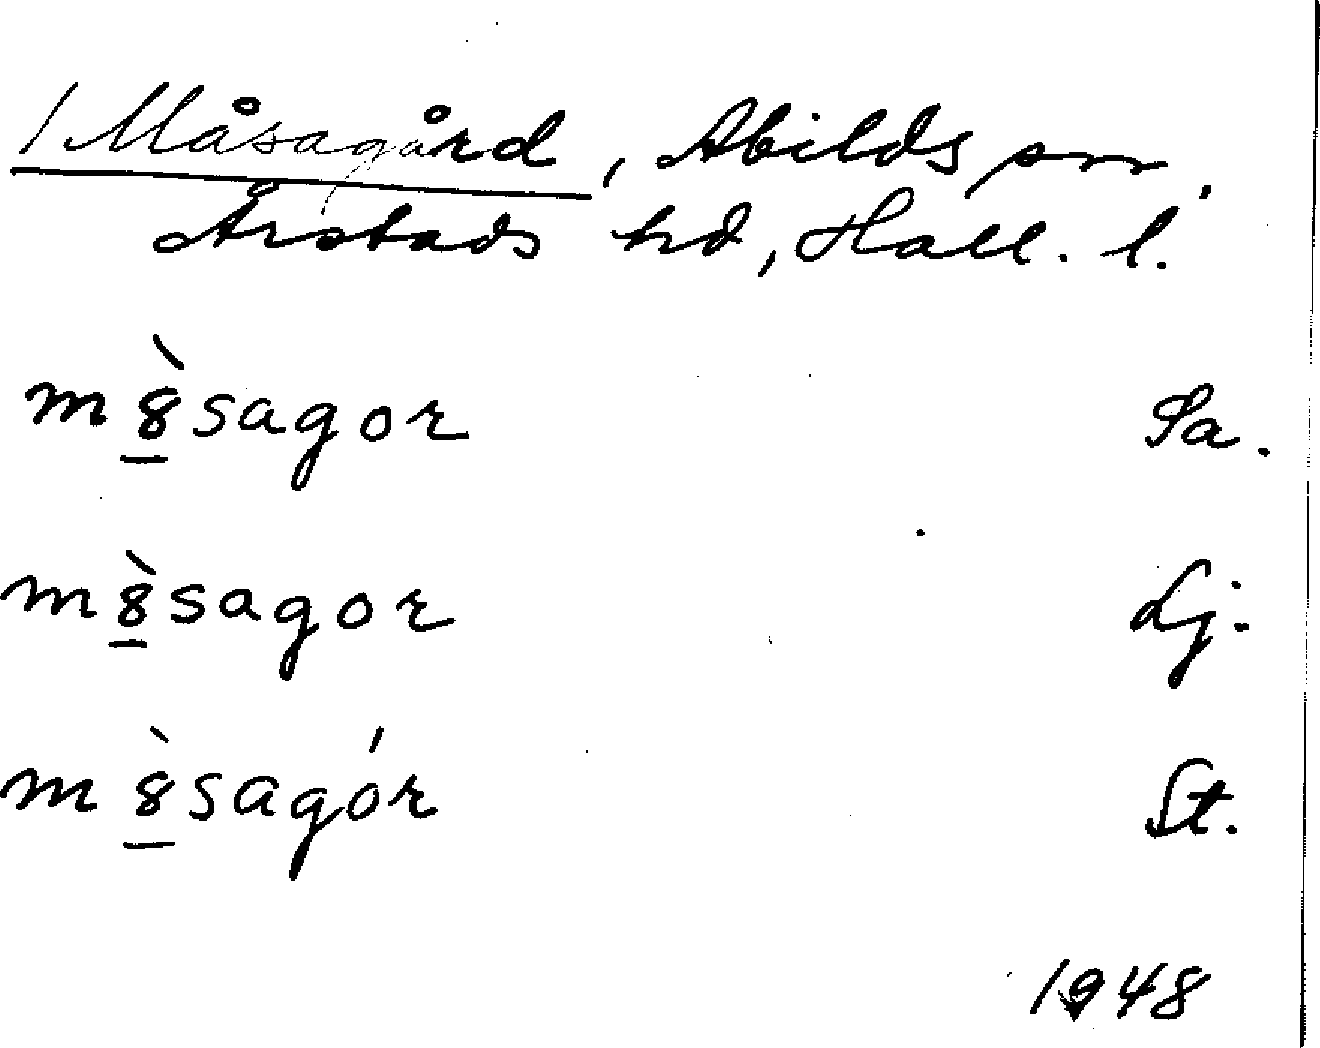 / Måsagård, Abilds sn,
Årstads hd, Hall. l.
m8̲̀sagor Sa.
m8̲̀sagor Lj.
m8̲̀sagór St.
1948